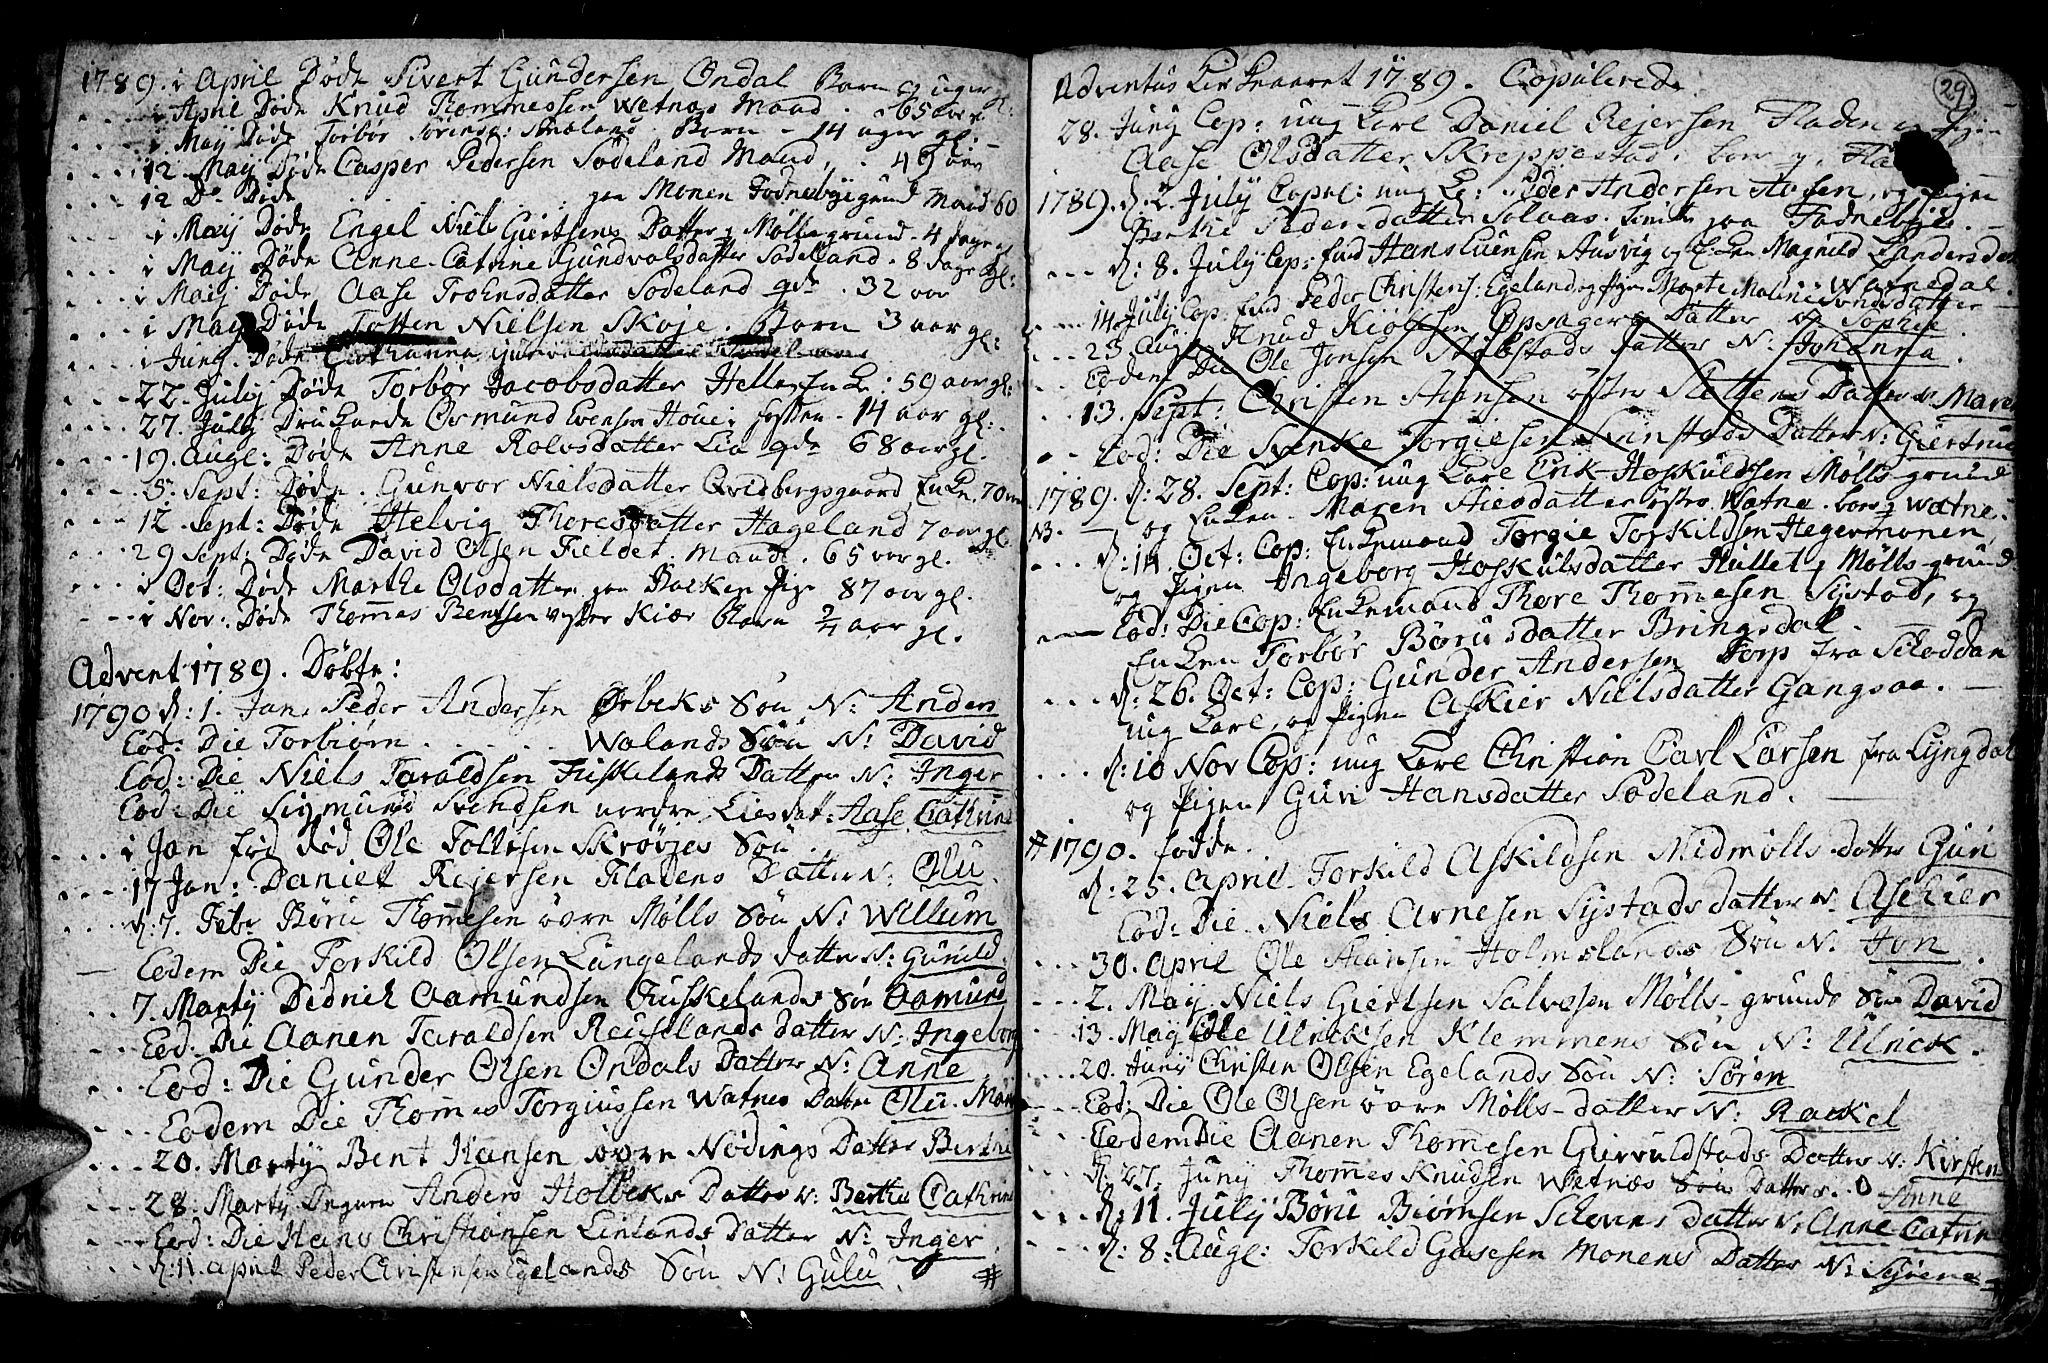 1789. i April Døde Sivert Gundersen Øndal Barn uger gl:
i April Døde Knud Thommessen Wetnæs Mand. 65 aar
i Maij Døde Torbor Børn - 14 uger gl:
12. Maij Døde Casper Pedersen Sodeland Mand, . 49 aar
12 Do Døde . . . . . paa Monen Fodnebyegrund Mand 60
i Maij Døde Engel Niels Giertsens Datter Møllsgrund. 4 dage gl
i Maij Døde Anne Catrine Gundvalsdatter Sodeland. 8 dage gl:
i Maij Døde Aase Troensdatter Sodeland . 32 aar
i Maij Døde Tosten Nielsen Skoje. Barn 3 aar gl:
i Junij Døde Cathanna
22. Julij Døde Torbor Jacobsdatter Helle Enke. 59 aar gl:
27. Julij Druknede Osmund Evensen Houe i fossen - 14 aar gl:
19. Augl: Døde Anne Rolvsdatter Lia 68 aar gl.
5. Sept: Døde. Gunvor Nielsdatter Qvidbergsgaard Enke. 70
12. Sept: Døde Helvig Thoresdatter Hageland 7 aar gl.
29 Sept: Døde David Olsen Fieldet. Mand. 65 aar gl.
i Oct: Døde Marthe Olsdatter paa Backen Pige 87 aar gl.
i Nov: Døde Thommes Bentsen Kiær Barn 3/4 aar gl.
Advent 1789. Døbte:
1790 d: 1. Jan. Peder Andersen Ørbeks Søn N: Anders
Eod: Die Torbiørn . . . . Walands Søn N: David
Eod: Die Niels Taraldsen Fuskelands Datter N: Inger
Eod: Die Sigmund Svendsen nordre Lies dat: Aase Cathrine
i Jan fød død Ole Tollefsen Skrøvjes Søn.
17 Jan: Daniel Rejersen Fladens Datter N: Olu
d: 7. Febr Børu Thommesen øvre Mølls Søn N: Willum
Eodem Die Torkild Olsen Langelands datter N: Gunild.
7. Martij Didrich Aamundsen Fuskelands Søn Aamund
Eod. Die Aanen Taraldsen Reuselands datter N: Ingeborg
Eod: Die Gunder Olsen Øndals Datter N: Anne
Eodem Die Thommes Torgiussen Watnes Datter Olu. Mari
20. Martij Bent Hansen øvre Nødings Datter Berthe
28. Martij Degnen Anders Holbeks Datter N: Berthe Cathrine
Eod: Die Hans Christiansen Linlands Datter N: Inger.
d: 11. april Peder Christensen Egelands Søn N: Gulu #
29
Adventus Kirkeaaret 1789. Copulerede
28. Junij Cop: ung Karl Daniel Rejersen Fladen og Pigen
Aase Olsdatter Skreppestad. boer
1789. d. 2. Julij Copul: ung K: Peder Andersen Aasen, og Pigen
Berthe Pedersdatter Solaas. paa Fodnebye.
d: 8. Julij Cop: Hans Evensen Ausvig og Enken Magnild Sandersdatter
Watnedal.
14. Julij Cop: Peder Christens: Egeland og Pigen Marte Malene
23. Aug: Knud Kiøllsen Opsagers Datter N: Sophie.
Eodem Die Ole Jonsen Støbstads Datter N: Johanna.
13. Sept: Christen Hansen østre Slettens Datter N: Maren
Eod: Die Svenke Torgiesen Svinstads Datter N: Giertrud
1789. d: 28. Sept: Cop: ung Karl Erik Hoskuldsen Mølls grund
og Enken Maren Aresdatter østre Watne. boer i Watne.
d: 14. Oct: Cop: Enkemand Torgie Torkildsen Hegermonen,
og Pigen Ingeborg Hoskulsdatter Hullet i Mølls grund
Eod: Die Cop: Enkemand Thore Thommesen Systad, og
Enken Torbor Børusdatter Bringsdal.
d: 26. Oct: Cop: Gunder Andersen Torp fra
ung Karl, og Pigen Askier Nielsdatter Gangsaa.
d: 10 Nov Cop: ung Karl Christian Carl Larsen fra Lyngdal
og Pigen Guri Hansdatter Sodeland.
# 1790. fødde.
d: 25. April Torkild Askildsen Midmølls datter Gun
Eod: Die Niels Arnesen Systads datter N: Askier
30. April Ole Hansen Holmslands Søn N: Jon.
2. Maij Niels Giertsen Salvesen Mølls-grunds Søn David
13. Maij Ole Ulricksen Klemmens Søn N: Ulrick.
20. Junij Christen Olsen Egelands Søn N: Søren
Eod: Die Ole Olsen øvre Mølls- datter N: Rackel
Eodem Die Aanen Thommesen Gierulstads Datter N: Kirsten
d. 27. Junij Thommes Knudsen Wetnæs Datter. Anne
d. 11. Julij Børu Biørnsen datter N: Anne Catrine
d: 8. Augl: Torkild Gasesen Monens Datter N: Syrene